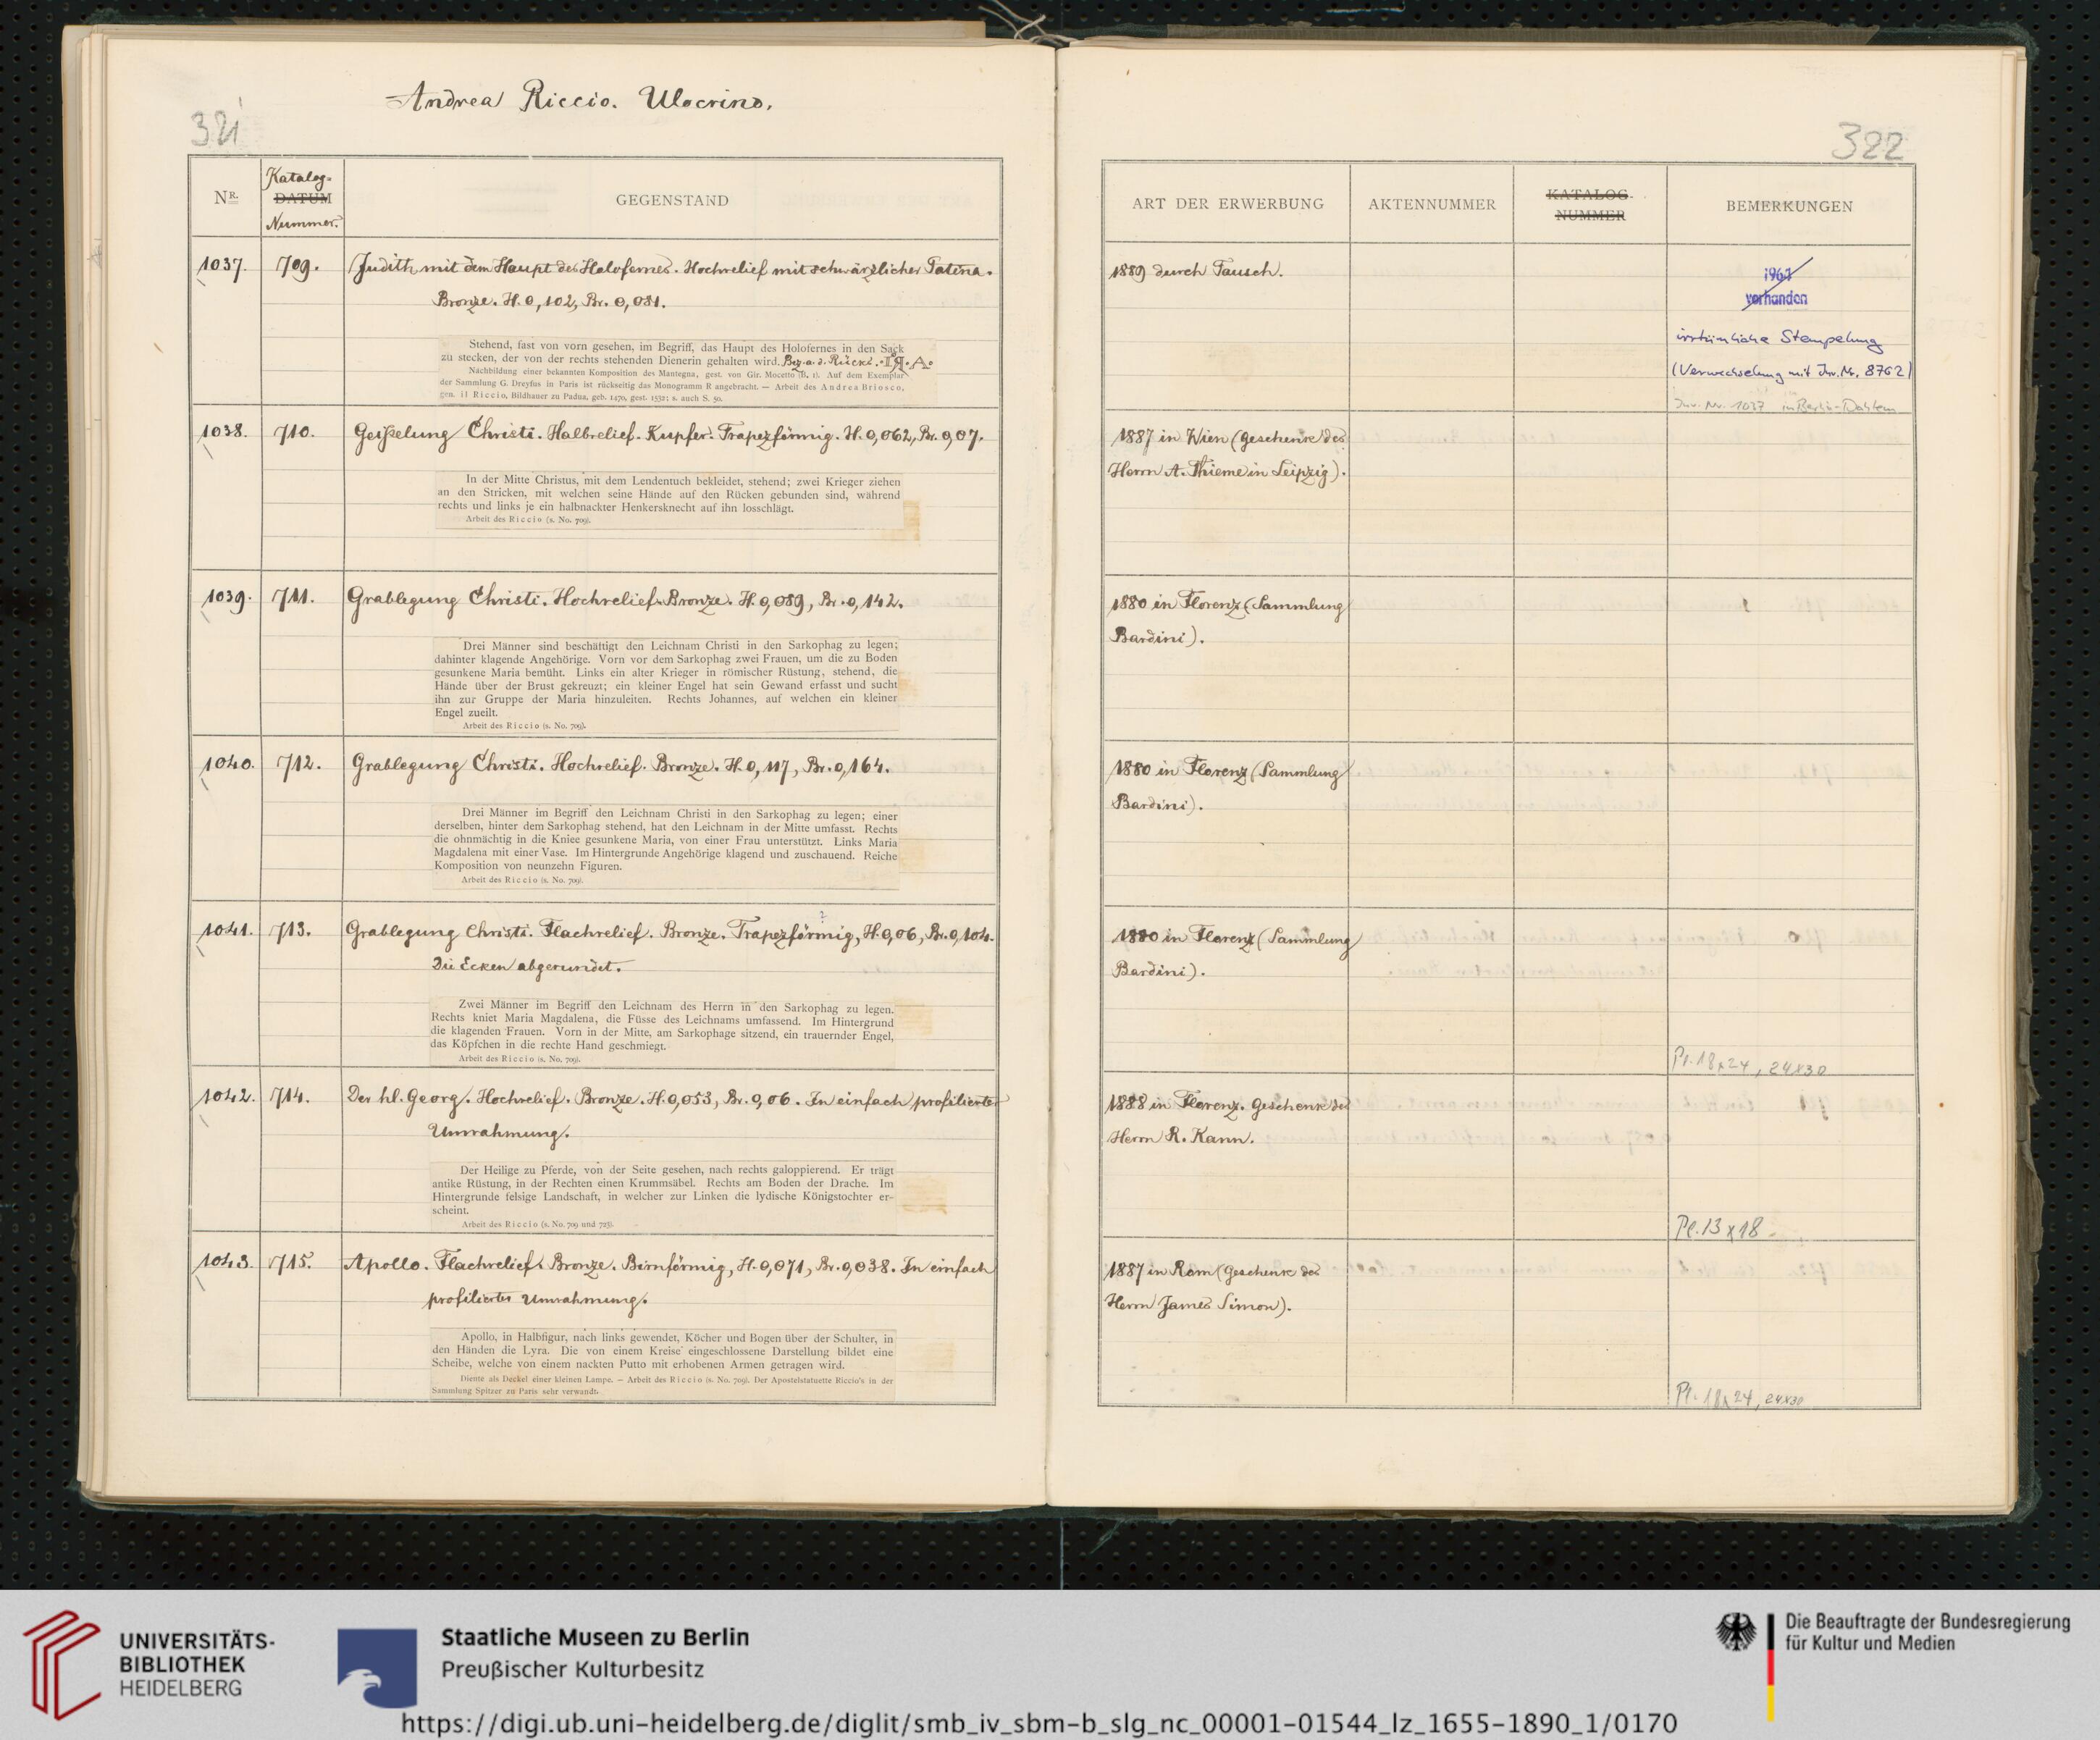 Andrea Riccio. Ulocrino.
321
NR.
Katalog-
DATUM
Nummer.
GEGENSTAND
1037. 709. Judith mit dem Haupt des Holofernes. Hochrelief mit schwärzlicher Patina.
Bronze. H. 0,102, Br. 0,081.
Stehend, fast von vorn gesehen, im Begriff, das Haupt des Holofernes in den Sack
zu stecken, der von der rechts stehenden Dienerin gehalten wird. Bez. a. d. Rücks.
Nachbildung einer bekannten Komposition des Mantegna, gest. von Gir. Mocetto (B. 1). Auf dem Exemplar
der Sammlung G. Dreyfus in Paris ist rückseitig das Monogramm R angebracht. — Arbeit des Andrea Briosco,
gen. il Riccio, Bildhauer zu Padua, geb. 1470, gest. 1532; s. auch S. 50.
1038. 710. Geißelung Christi. Halbrelief. Kupfer. Trapezförmig. H. 0,062, Br. 0,07.
In der Mitte Christus, mit dem Lendentuch bekleidet, stehend; zwei Krieger ziehen
an den Stricken, mit welchen seine Hände auf den Rücken gebunden sind, während
rechts und links je ein halbnackter Henkersknecht auf ihn losschlägt.
Arbeit des Riccio (s. No. 709).
1039. 711. Grablegung Christi. Hochrelief. Bronze. H. 0,089, Br. 0,142.
Drei Männer sind beschäftigt den Leichnam Christi in den Sarkophag zu legen;
dahinter klagende Angehörige. Vorn vor dem Sarkophag zwei Frauen, um die zu Boden
gesunkene Maria bemüht. Links ein alter Krieger in römischer Rüstung, stehend, die
Hände über der Brust gekreuzt; ein kleiner Engel hat sein Gewand erfasst und sucht
ihn zur Gruppe der Maria hinzuleiten. Rechts Johannes, auf welchen ein kleiner
Engel zueilt.
Arbeit des Riccio (s. No. 709).
1040. 712. Grablegung Christi. Hochrelief. Bronze. H. 0,117, Br. 0,164.
Drei Männer im Begriff den Leichnam Christi in den Sarkophag zu legen; einer
derselben, hinter dem Sarkophag stehend, hat den Leichnam in der Mitte umfasst. Rechts
die ohnmächtig in die Kniee gesunkene Maria, von einer Frau unterstützt. Links Maria
Magdalena mit einer Vase. Im Hintergrunde Angehörige klagend und zuschauend. Reiche
Komposition von neunzehn Figuren.
Arbeit des Riccio (s. No. 709).
?
1041. 713. Grablegung Christi. Flachrelief. Bronze. Trapezförmig, H. 0,06, Br. 0,104.
Die Ecken abgerundet.
Zwei Männer im Begriff den Leichnam des Herrn in den Sarkophag zu legen.
Rechts kniet Maria Magdalena, die Füsse des Leichnams umfassend. Im Hintergrund
die klagenden Frauen. Vorn in der Mitte, am Sarkophage sitzend, ein trauernder Engel,
das Köpfchen in die rechte Hand geschmiegt.
Arbeit des Riccio (s. No. 709).
1042. 714. Der hl. Georg. Hochrelief. Bronze. H. 0,053, Br. 0,06. In einfach profilierter
Umrahmung.
Der Heilige zu Pferde, von der Seite gesehen, nach rechts galoppierend. Er trägt
antike Rüstung, in der Rechten einen Krummsäbel. Rechts am Boden der Drache. Im
Hintergrunde felsige Landschaft, in welcher zur Linken die lydische Königstochter er-
scheint.
Arbeit des Riccio (s. No. 709 und 723).
1043. 715. Apollo. Flachrelief. Bronze. Birnförmig, H. 0,071, Br. 0,038. In einfach
profilierter Umrahmung.
Apollo, in Halbfigur, nach links gewendet, Köcher und Bogen über der Schulter, in
den Händen die Lyra. Die von einem Kreise eingeschlossene Darstellung bildet eine
Scheibe, welche von einem nackten Putto mit erhobenen Armen getragen wird.
Diente als Deckel einer kleinen Lampe. — Arbeit des Riccio (s. No. 709). Der Apostelstatuette Riccio's in der
Sammlung Spitzer zu Paris sehr verwandt.
322
ART DER ERWERBUNG
AKTENNUMMER
KATALOG-
NUMMER
BEMERKUNGEN
1889 durch Tausch.
1967
vorhanden
irrtümliche Stempelung
(Verwechselung mit Inv. Nr. 8762)
Inv. Nr. 1037 in Berlin-Dahlem
1887 in Wien (Geschenk des
Herrn A. Thieme in Leipzig).
1880 in Florenz (Sammlung
Bardini).
1880 in Florenz (Sammlung
Bardini).
1880 in Florenz (Sammlung
Bardini).
Pl. 18x24, 24x30
1888 in Florenz. Geschenk des
Herrn R. Kann.
Pl. 13x18
1887 in Rom (Geschenk des
Herrn James Simon).
Pl. 18x24, 24x30
UNIVERSITÄTS-
BIBLIOTHEK
HEIDELBERG
Staatliche Museen zu Berlin
Preußischer Kulturbesitz
Die Beauftragte der Bundesregierung
für Kultur und Medien
https://digi.ub.uni-heidelberg.de/diglit/smb_iv_sbm-b_slg_nc_00001-01544_lz_1655-1890_1/0170